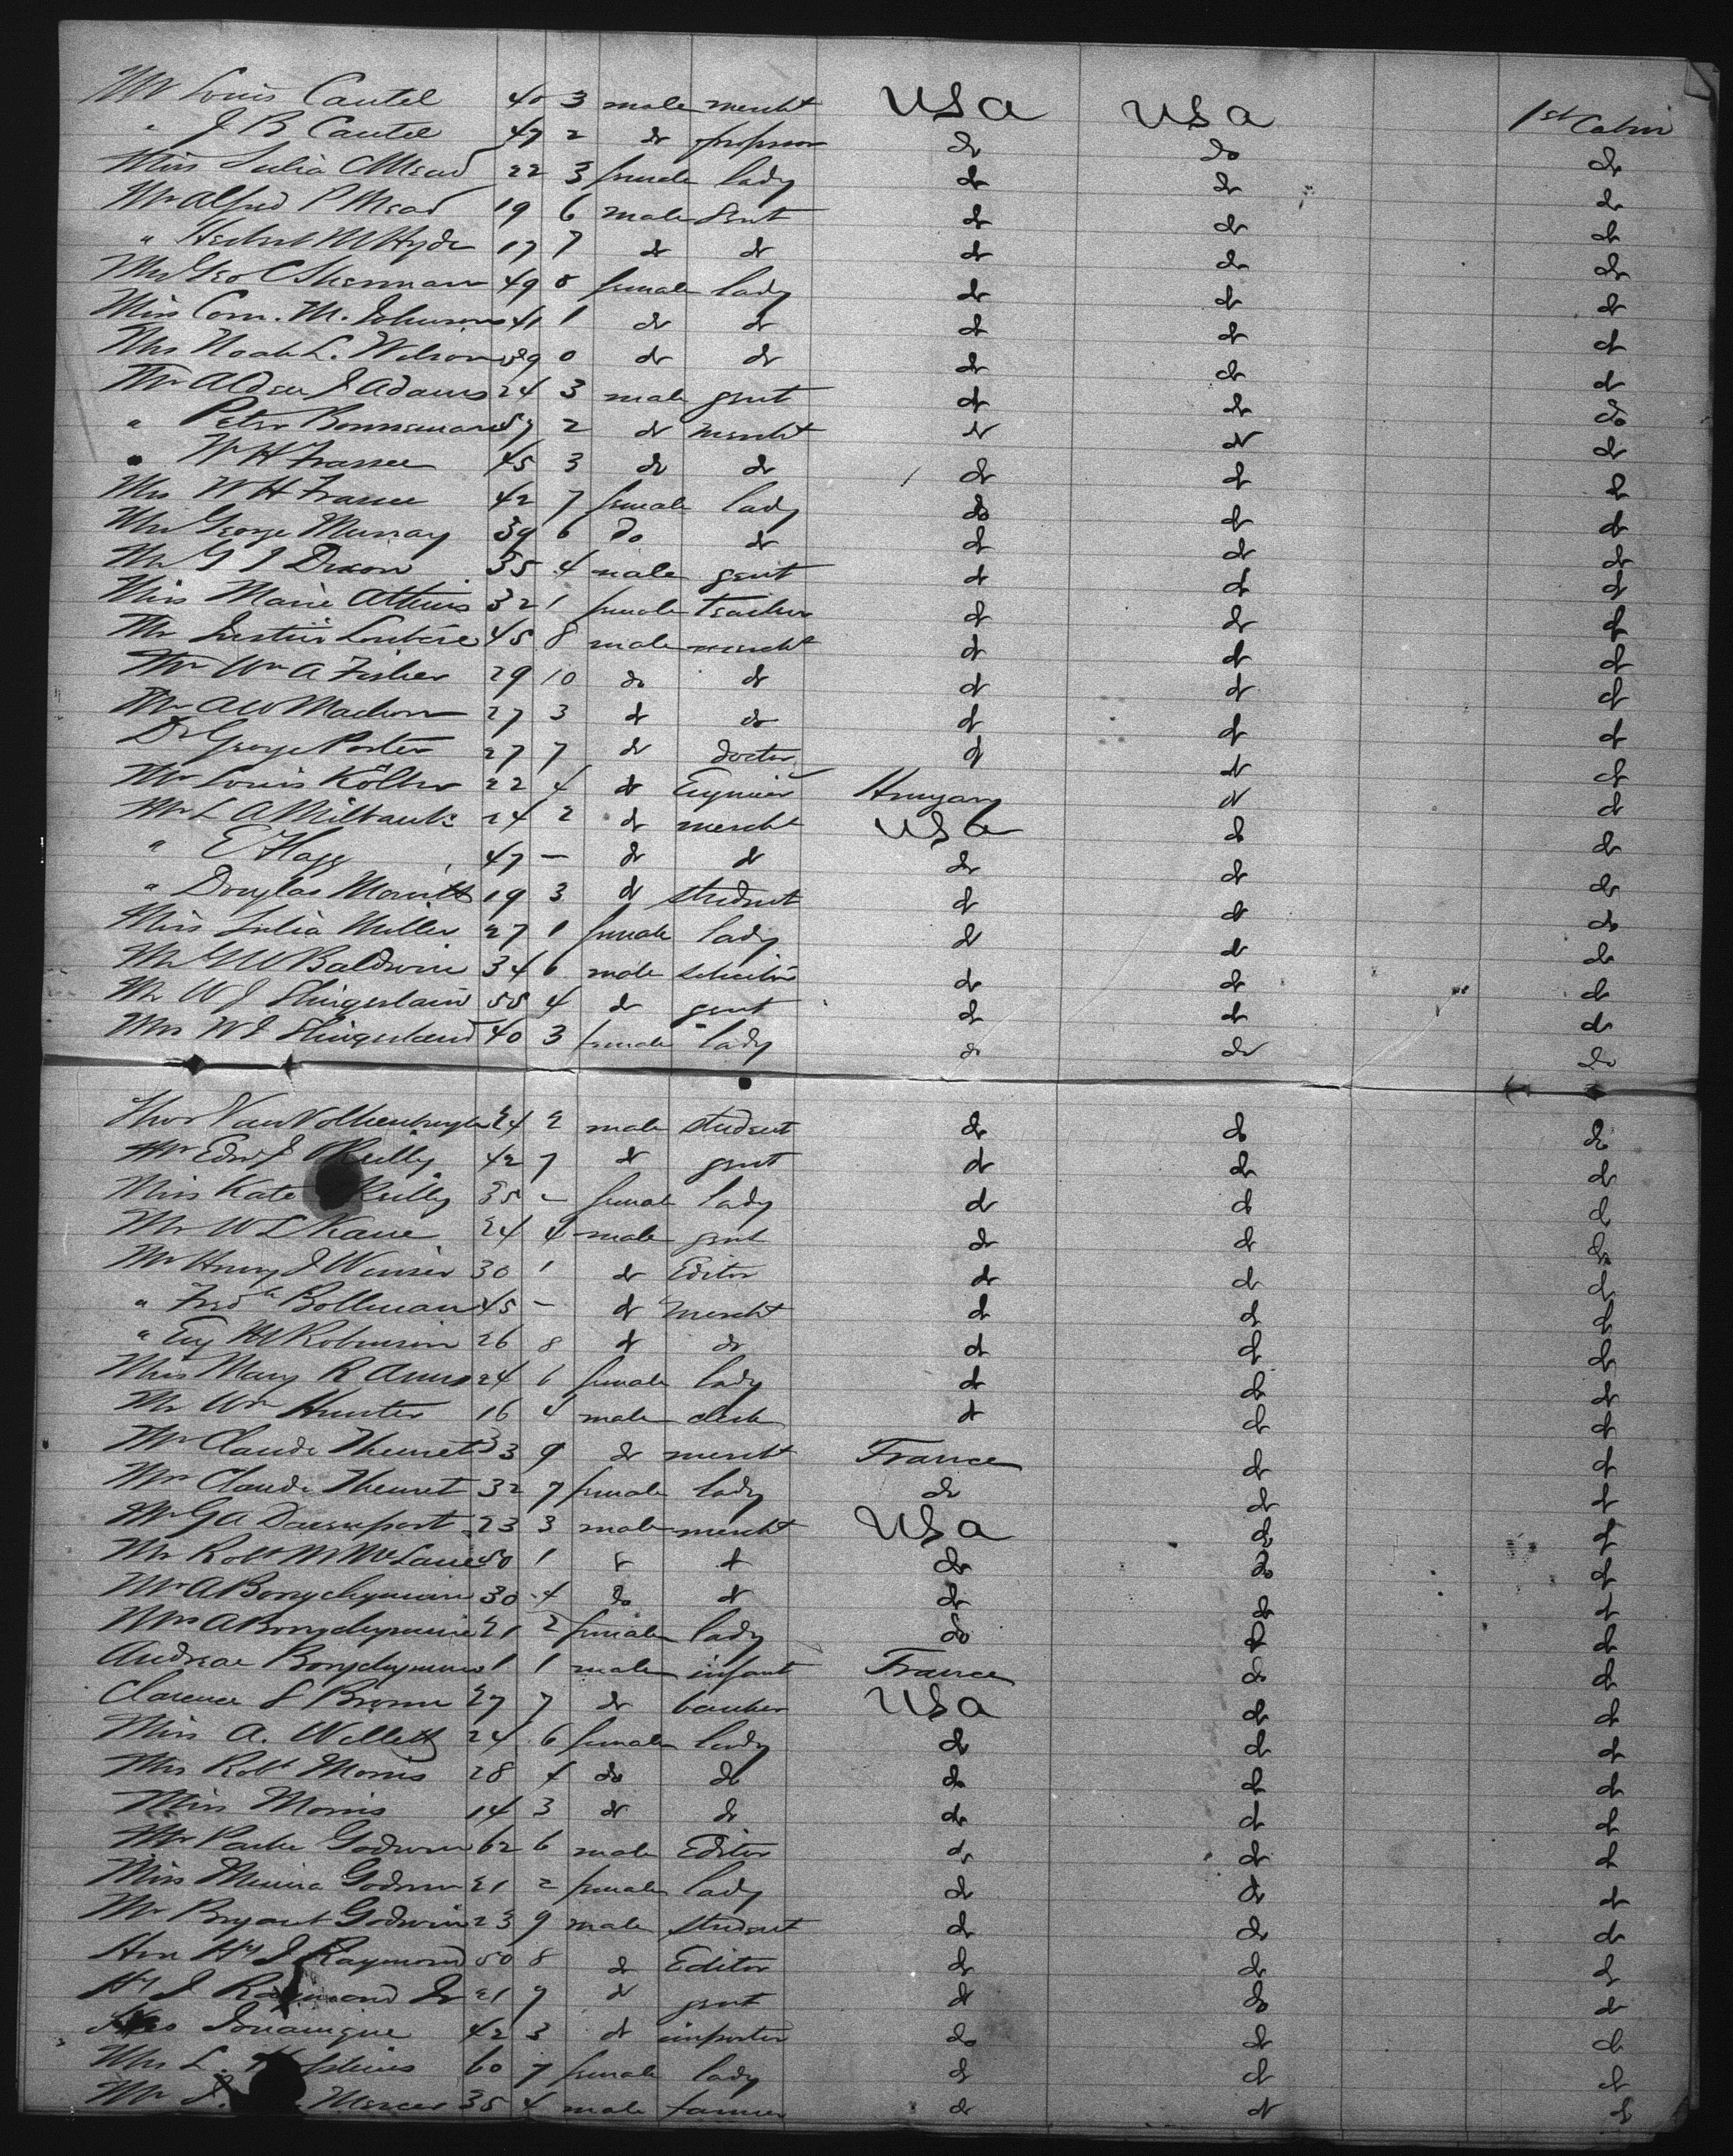 Mr Louis Cautel 40 3 male mercht USA USA 1st Cabin
" J B Cautel 47 2 do do do do
Miss Julia Mead 22 3 female lady do do do
Mr Alfred P Mead 19 6 male Gent do do do
" Herbert M Hyde 17 7 do do do do do
Mrs Geo C Sherman 49 8 female lady do do do
Miss Corn. M. Johnson 41 1 do do do do do
Mrs Noah L. Wilson 39 0 do do do do do
Mr Alden J Adams 24 3 male gent do do do
" Peter 57 2 do mercht do do do
" W H 45 3 do do do do do
Mrs W H 42 7 female lady do do do
Mrs George Murray 39 6 do do do do do
Mr G J Dixon 35 4 male gent do do do
Miss Marie 32 1 female Teacher do do do
Mr 45 8 male mercht do do do
Mr Wm A Fisher 29 10 do do do do do
Mr A W 27 3 do do do do do
Dr George Porter 27 7 do doctor do do do
Mr Louis 22 4 do Hungary do do
Mr L A Milbank 24 2 do mercht USA do do
" E Flagg 47 – do do do do do
" Douglas Merritt 19 3 do student do do do
Miss Julia Miller 27 1 female lady do do do
Mr G W Baldwin 34 6 male do do do
Mr W J Slingerland 55 4 do gent do do do
Mrs W J Slingerland 40 3 female lady do do do
Thos 24 2 male student do do do
Mr Edw J Reilly 42 7 do gent do do do
Miss Kate Reilly 35 – female lady do do do
Mr W L Kane 24 4 male gent do do do
Mr Henry J Winser 30 1 do Editor do do do
" Fredk Bollman 45 – do mercht do do do
" Eug M Robinson 26 8 do do do do do
Miss Mary R 24 6 female lady do do do
Mr Wm Hunter 16 4 male clerk do do do
Mr Claude Theuret 33 9 do mercht France do do
Mrs Claude Theuret 32 7 female lady do do do
Mr G A Davenport 23 3 male mercht USA do do
Mr Robt M McLane 50 1 do do do do do
Mr A 30 4 do do do do do
Mrs A 21 2 female lady do do do
1 1 male infant France do do
Clarence S Brown 27 7 do banker USA do do
Miss A. Willett 24 6 female lady do do do
Mrs Robt Morris 28 4 do do do do do
Miss Morris 14 3 do do do do do
Mr Parke Godwin 62 6 male Editor do do do
Miss Godwin 21 2 female lady do do do
Mr Bryant Godwin 23 9 male student do do do
Hon Hy J Raymond 50 8 do Editor do do do
Hy J Raymond Jr 21 9 do gent do do do
42 3 do importer do do do
Mrs L. 60 7 female lady do do do
Mr J. Mercer 35 4 male farmer do do do